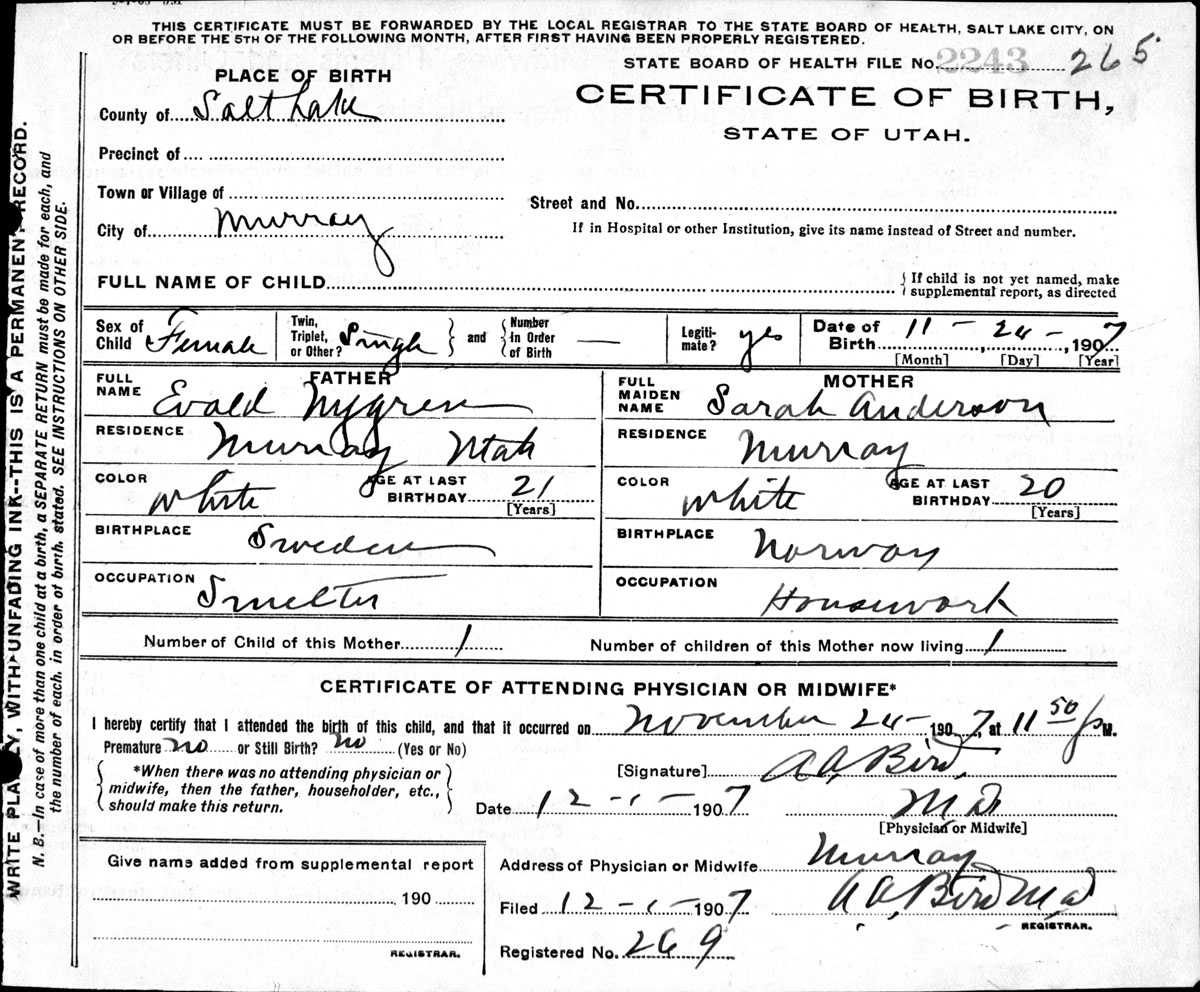 THIS CERTIFICATE MUST BE FORWARDED BY THE LOCAL REGISTRAR TO THE STATE BOARD OF HEALTH, SALT LAKE CITY, ON
OR BEFORE THE 5TH OF THE FOLLOWING MONTH, AFTER FIRST HAVING BEEN PROPERLY REGISTERED.
STATE BOARD OF HEALTH FILE No. 2243 265
PLACE OF BIRTH
CERTIFICATE OF BIRTH,
STATE OF UTAH.
County of Salt Lake
Precinct of
Town or Village of
Street and No.
City of Murray
If in Hospital or other Institution, give its name instead of Street and number.
FULL NAME OF CHILD { If child is not yet named, make
supplemental report, as directed
Sex of Child Female Twin, Triplet, or Other? Single and Number in Order of Birth — Legitimate? yes Date of Birth 11 - 24 -, 1907
[Month] [Day] [Year]
FATHER MOTHER
FULL NAME Evald Nygren FULL MAIDEN NAME Sarah Anderson
RESIDENCE Murray Utah RESIDENCE Murray
COLOR White AGE AT LAST BIRTHDAY 21 [Years] COLOR White AGE AT LAST BIRTHDAY 20 [Years]
BIRTHPLACE Sweden BIRTHPLACE Norway
OCCUPATION Smelter OCCUPATION Housework
Number of Child of this Mother 1 Number of children of this Mother now living 1
CERTIFICATE OF ATTENDING PHYSICIAN OR MIDWIFE*
I hereby certify that I attended the birth of this child, and that it occurred on November 24 - 1907, at 11 50 p M.
Premature no or Still Birth? no (Yes or No)
*When there was no attending physician or
midwife, then the father, householder, etc.,
should make this return.
[Signature] A A, Bird,
Date 12 - 1 - 1907 M D
[Physician or Midwife]
Give name added from supplemental report
190
REGISTRAR.
Address of Physician or Midwife Murray
Filed 12 - 1 - 1907 A A, Bird M D
REGISTRAR.
Registered No. 269
WRITE PLAINLY, WITH UNFADING INK--THIS IS A PERMANENT RECORD.
N. B.—In case of more than one child at a birth, a SEPARATE RETURN must be made for each, and
the number of each, in order of birth, stated. SEE INSTRUCTIONS ON OTHER SIDE.